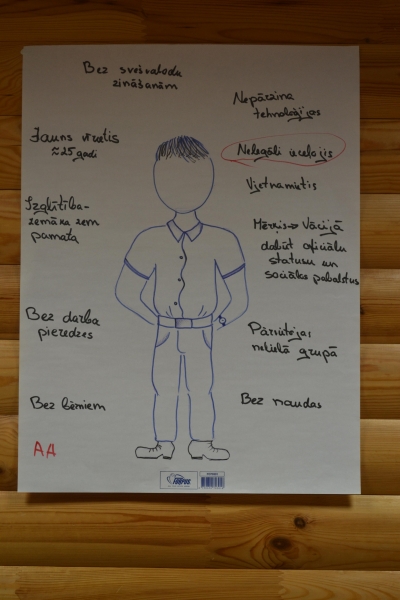 Bez svešvalodu
zināšanām
Jauns vīrietis
≈25 gadi
Izglītība-
zemāka zem
pamata
Bez darba
pieredzes
Bez bērniem
AA
Nepārzina
tehnoloģijas
Nelegāli ieceļojis
Vjetnamietis
Mērķis→ Vācijā
dabūt oficiālu
statusu un
sociālos pabalstus
Pārvietojas
nelielā grupā
Bez naudas
FORPUS